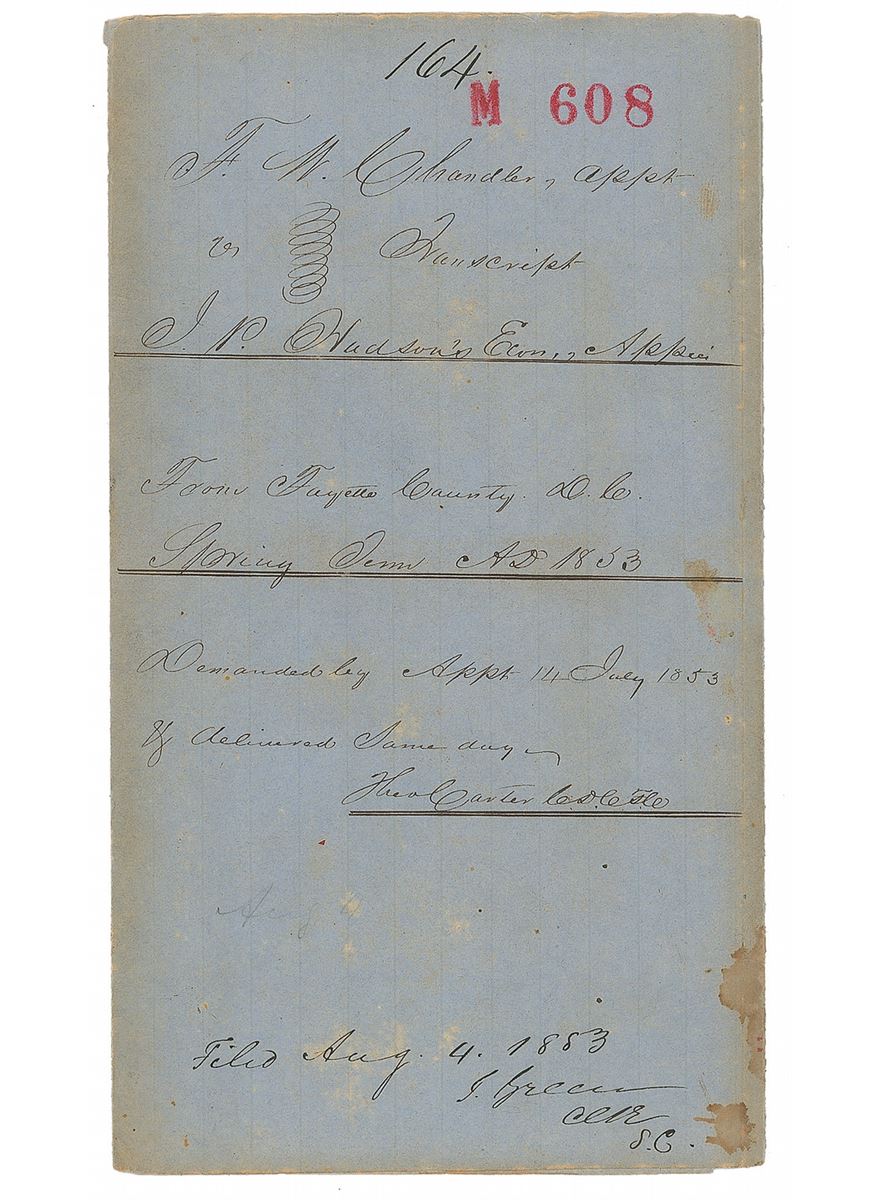 164.
M 608
F. W. Chandler, appt
vs Transcript
J. P. Hudson's Exor., Appee
From Fayette County D. C.
Spring Term AD 1853
Demanded by Appt 14 July 1853
& delivered Same day
Carter C.D.C.F.C.
Aug 4
Filed Aug. 4. 1853
J. Green
Clk
S.C.